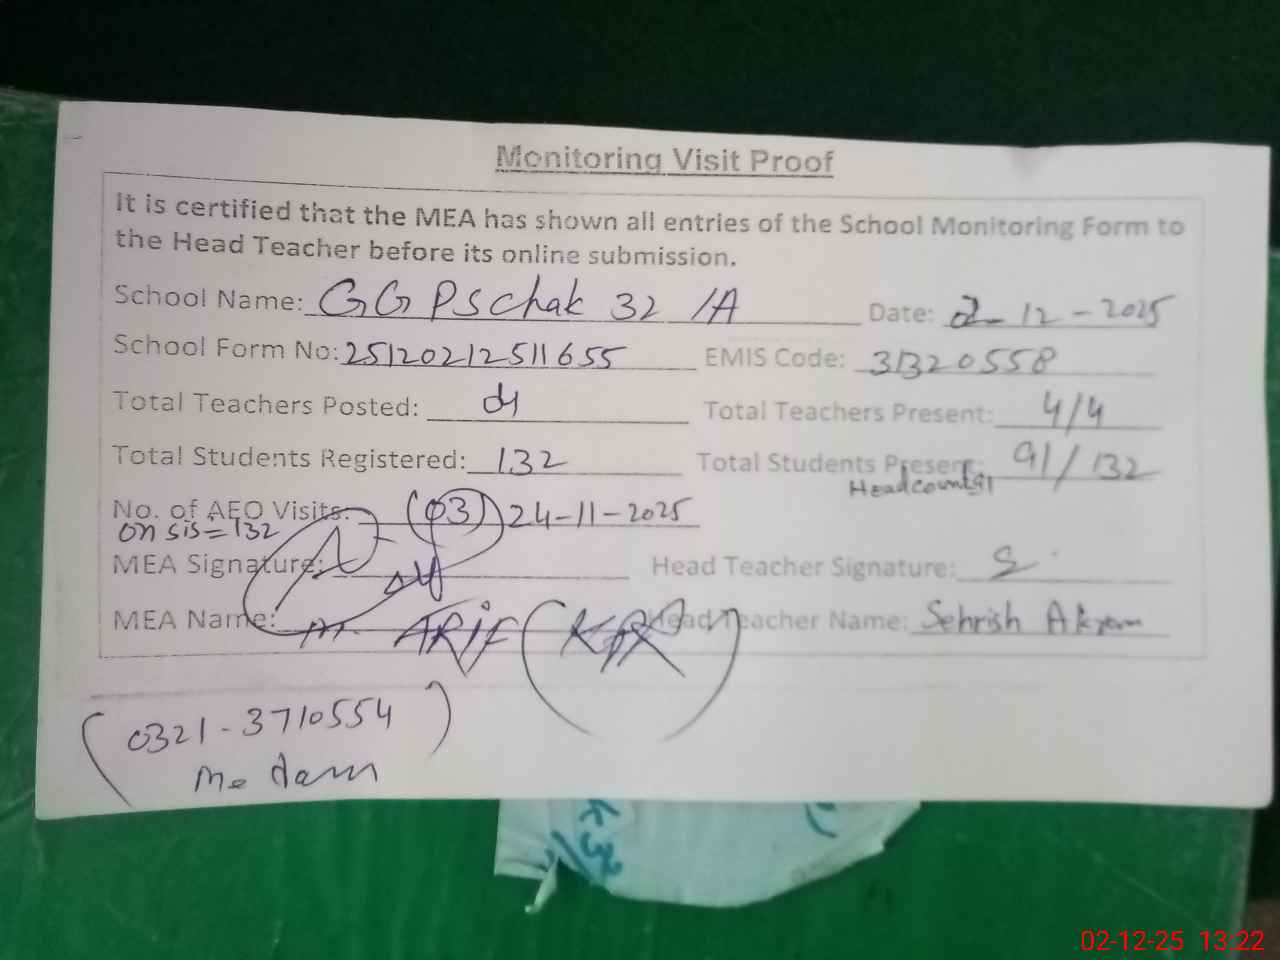 Monitoring Visit Proof
It is certified that the MEA has shown all entries of the School Monitoring Form to
the Head Teacher before its online submission.
School Name: GGPS Chak 32 /A Date: 2-12-2025
School Form No: 2512021251165​5 EMIS Code: 31320558
Total Teachers Posted: 04 Total Teachers Present: 4/4
Total Students Registered: 132 Total Students Present: 91/132
Headcount 91
No. of AEO Visits: (03) 24-11-2025
on sis = 132
MEA Signature: Head Teacher Signature:
MEA Name: M. ARIF Head Teacher Name: Sehrish Akram
(0321-3710554)
Madam
02-12-25 13:22